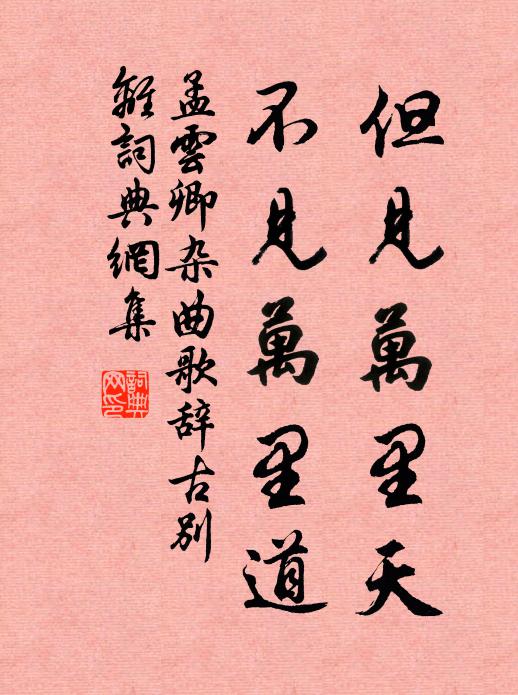 但見萬里天
不見萬里道
孟雲卿杂曲歌辞古别
離詞典網集
詞典
网印